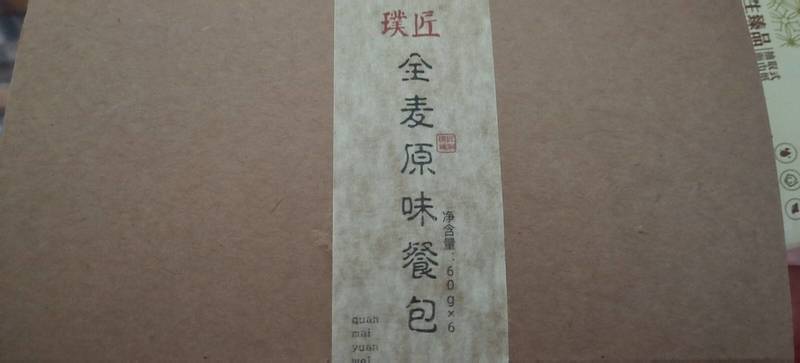 璞匠
全麦原味餐包
净含量：60g×6
quan
mai
yuan
wei
生臻品